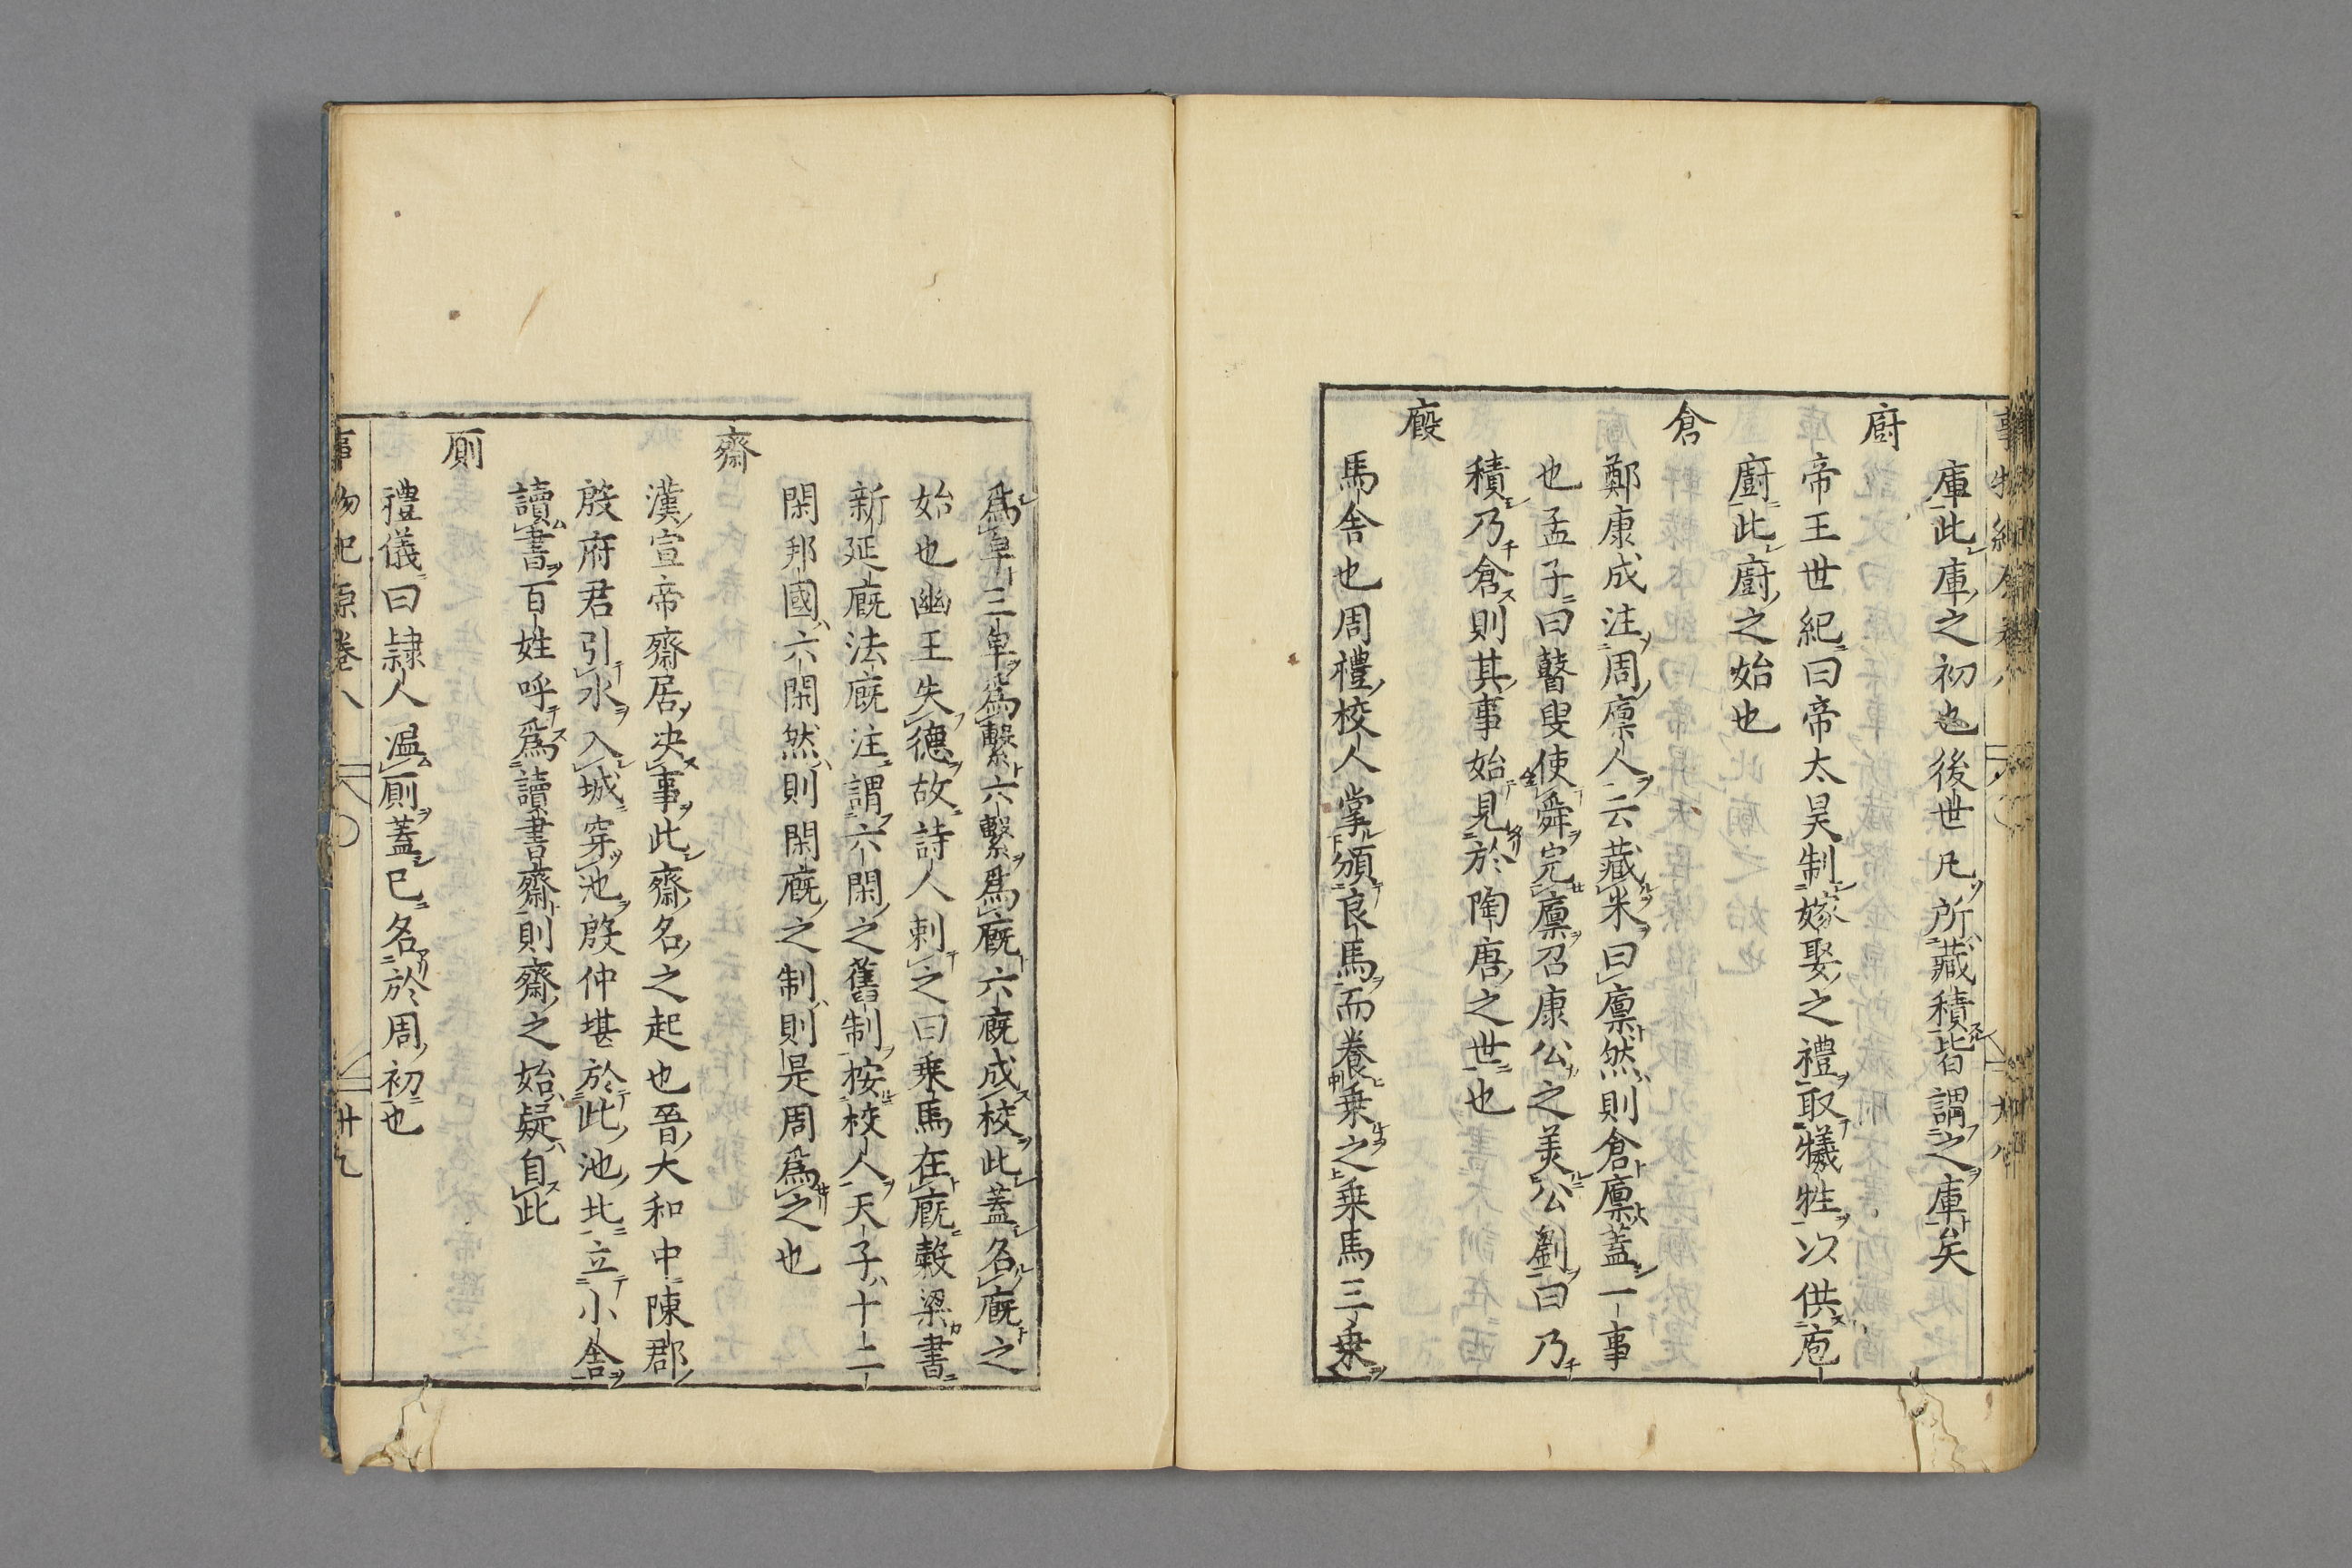 庫此庫之初也後世凡所藏積皆謂之庫矣
廚
帝王世紀曰帝太昊制嫁娶之禮取犧牲以供庖
廚此廚之始也
倉
鄭康成注周廩人云藏米曰廩然則倉廩蓋一事
也孟子曰瞽叟使舜完廩召康公之美公劉曰乃
積乃倉則其事始見於陶唐之世也
廄
馬舍也周禮校人掌頒良馬而養乗之乗馬三乗
爲皁三皁爲繫六繫爲廐六廐成校此蓋名廐之
始也幽王失德故詩人刺之曰乗馬在廐穀梁書
新延廐法廐注謂六閑之舊制按校人天子十二
閑邦國六閑然則閑廐之制則是周爲之也
齋
漢宣帝齋居决事此齋名之起也晉大和中陳郡
殷府君引水入城穿池殷仲堪於此池北立小舎
讀書百姓呼爲讀書齋則齋之始疑自此
厠
禮儀曰隷人温厠蓋已名於周初也
事物紀原卷八